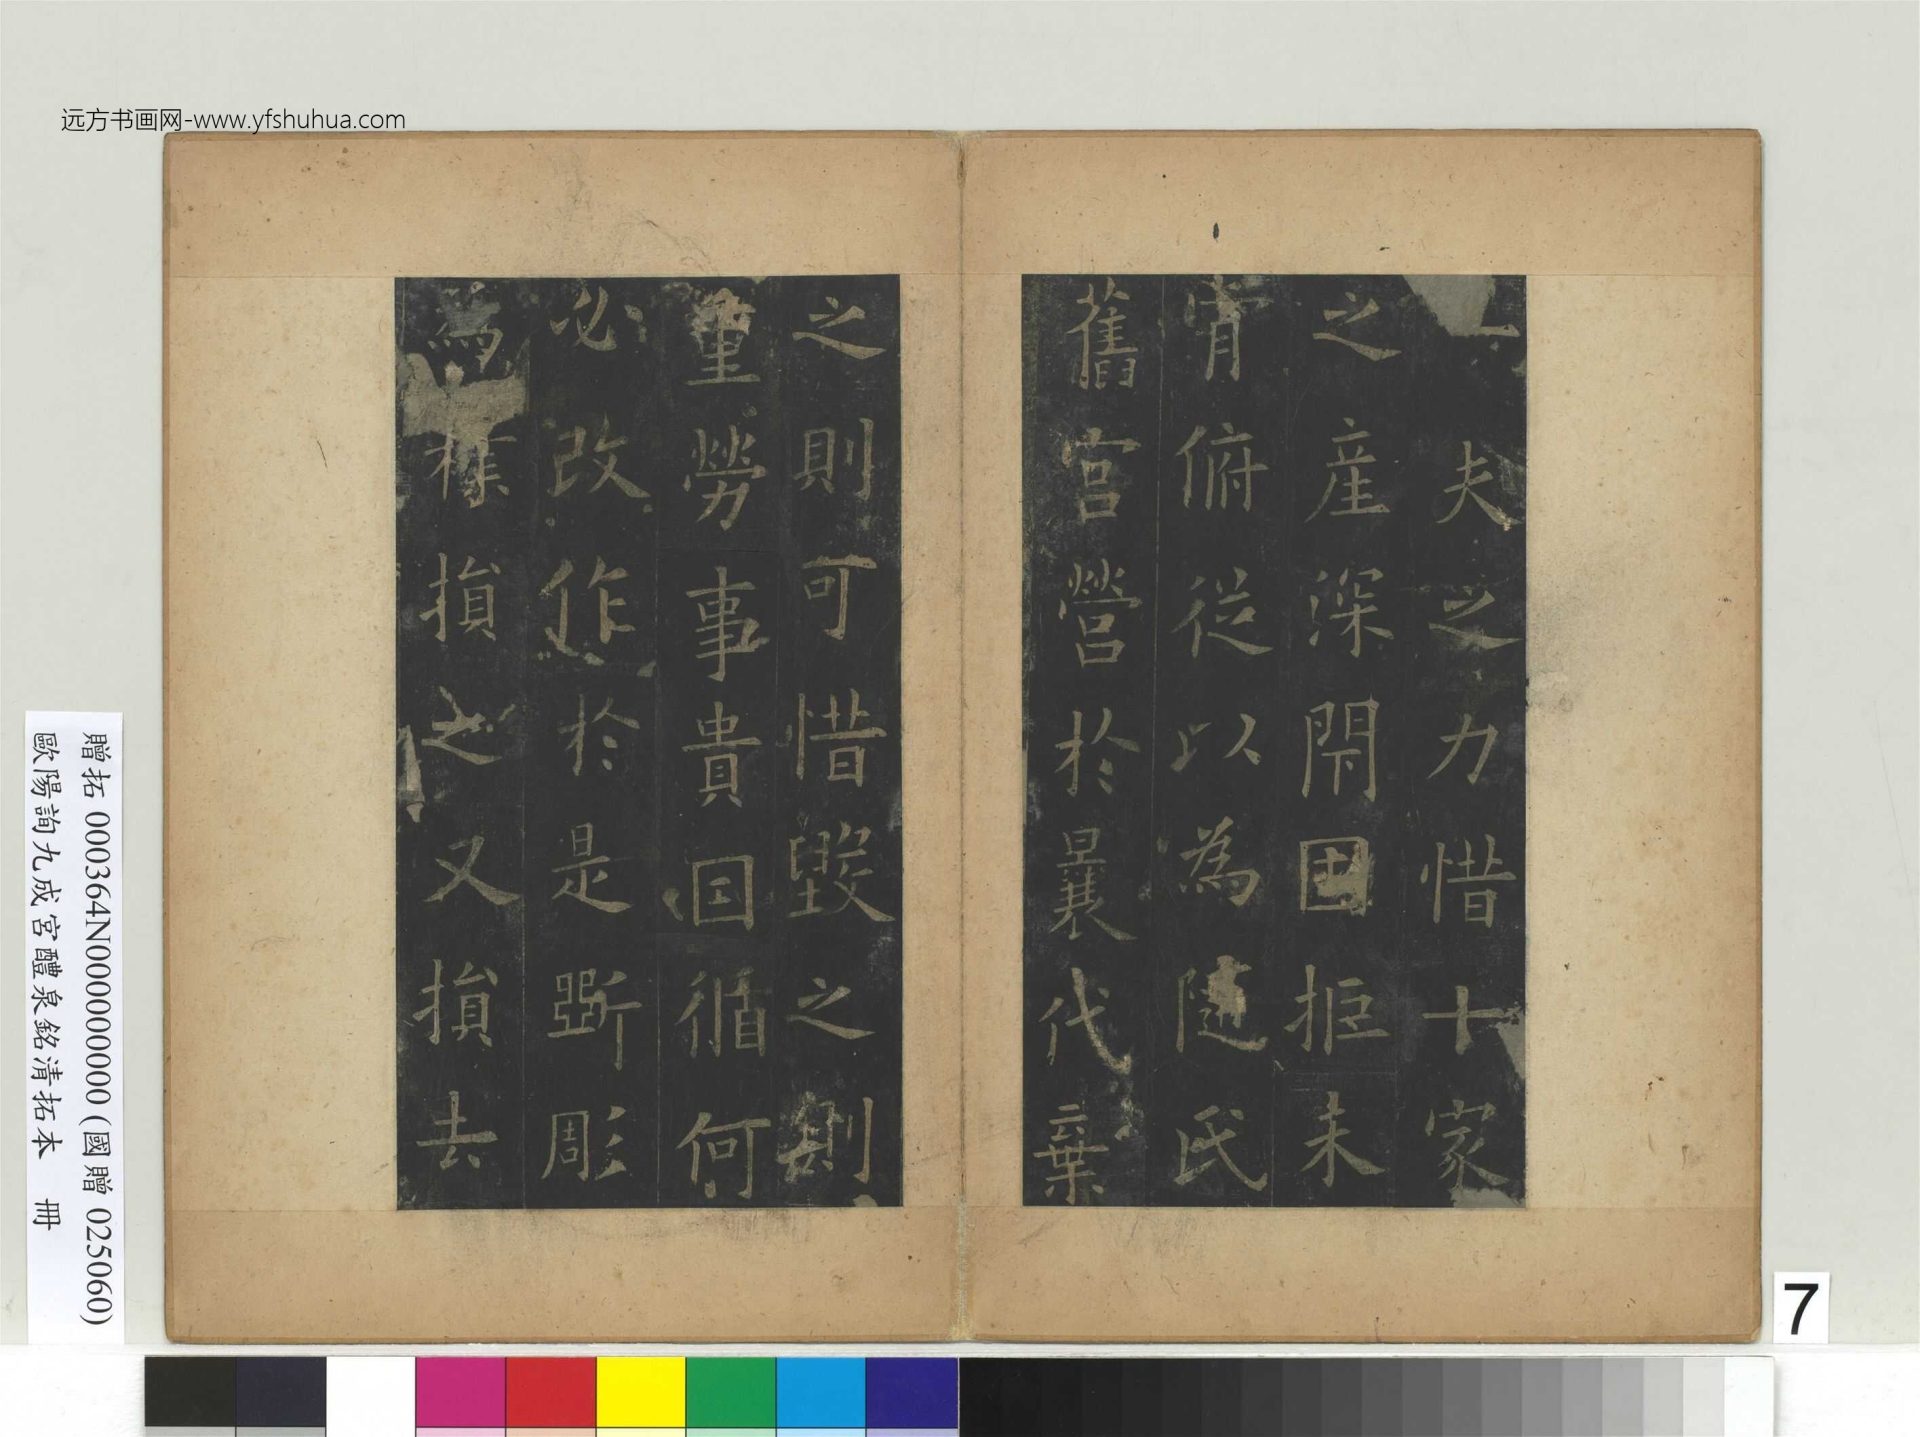 远方书画网-www.yfshuhua.com
一夫之力惜十家
之産深閇固拒未
肯俯從以為隨氏
舊宮營於曩代棄
之則可惜毀之則
重勞事貴因循何
必改作於是斲彫
為樸損之又損去
贈拓 000364N000000000 (國贈 025060)
歐陽詢九成宮醴泉銘清拓本 冊
7